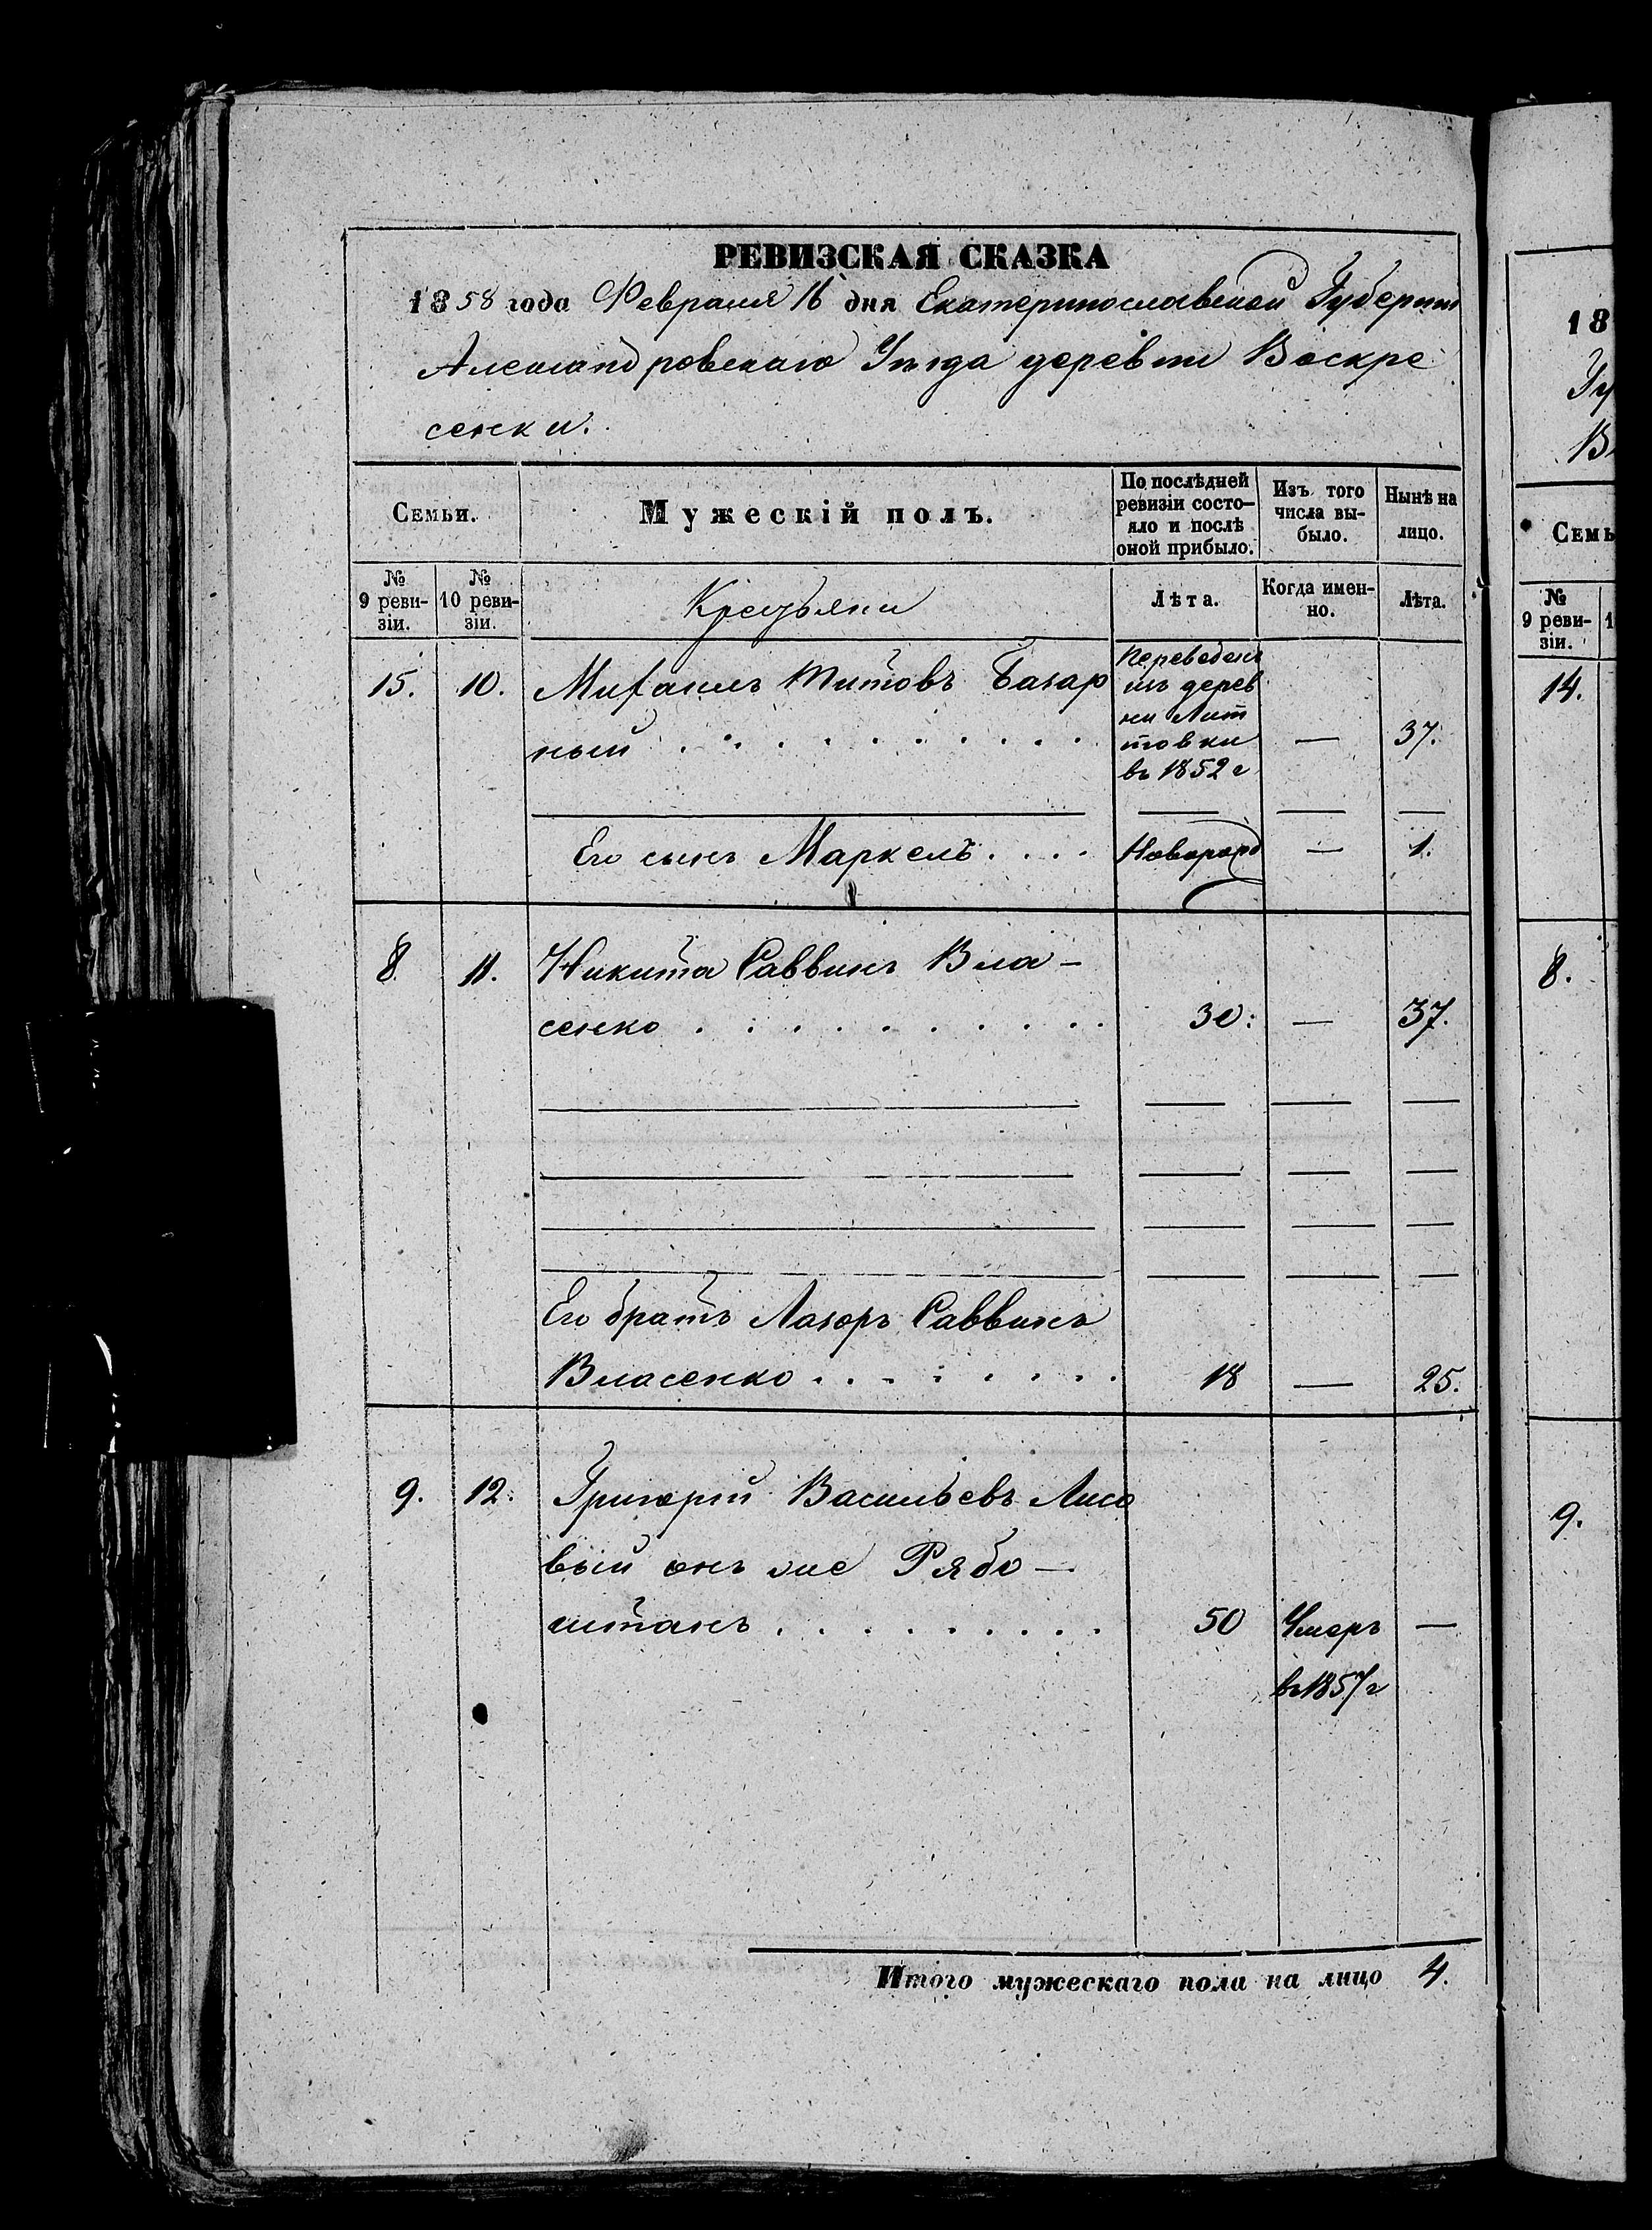 РЕВИЗСКАЯ СКАЗКА
1858 года Февраля 16 дня Екатеринославской Губерніи
Александровскаго Уѣзда деревни Воскре
сенки.
Семьи.
Мужескій полъ.
По послѣдней ревизіи состо-
яло и послѣ оной прибыло.
Изъ того числа вы-
было.
Нынѣ на лицо.
№ 9 реви-
зіи.
№ 10 реви-
зіи.
Крестьяни
Лѣта.
Когда имен-
но.
Лѣта.
15. 10. Михаилъ Титовъ Базар
ный . . . . . . . . . — 37.
Переведенъ
изъ дерев
ни Лит
товки
въ 1852 г
Его сынъ Маркелъ. . . . Новорожд — 1.
8 11. Никита Саввинъ Вла-
сенко . . . . . . . . . . 30: — 37.
Его братъ Лазоръ Саввинъ
Власенко . . . . . . . . 18 — 25.
9. 12. Григорій Васильевъ Лисо
вый онъ же Рябо-
штанъ . . . . . . . . . 50 Умеръ —
въ 1857 г
Итого мужескаго пола на лицо 4.
18
Гу
В
Семь
№ 9 реви-
зіи.
1
14.
8.
9.